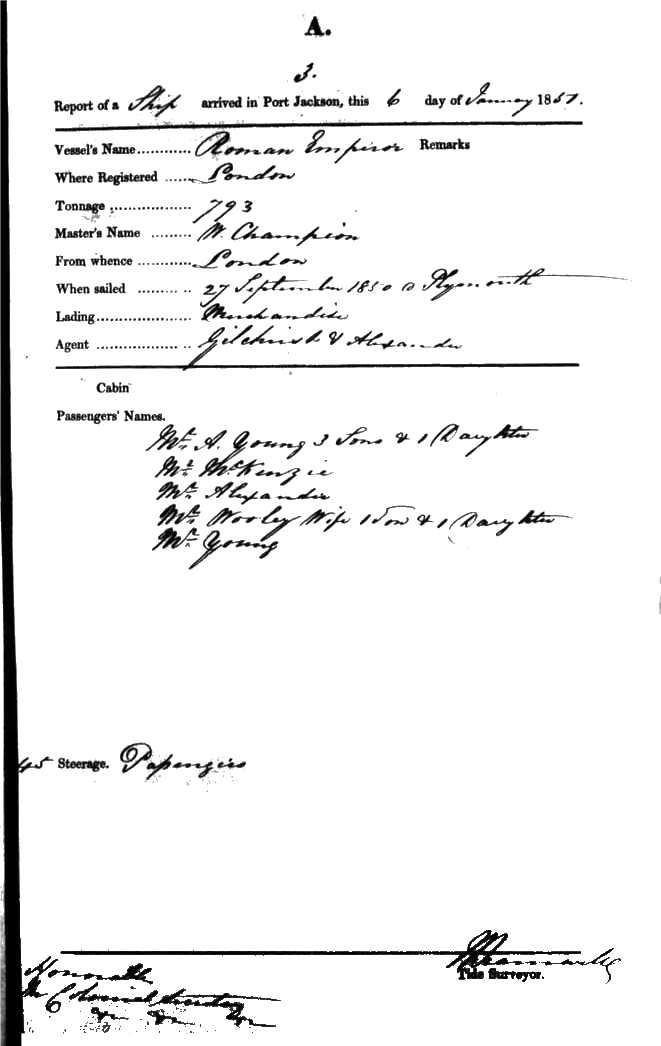 A.
3.
Report of a Ship arrived in Port Jackson, this 6 day of January 1851.
Vessel's Name ............ Roman Emperor Remarks
Where Registered ...... London
Tonnage .................. 793
Master's Name ......... W. Champion
From whence ............ London
When sailed ............ 27 September 1850 @ Plymouth
Lading..................... Merchandise
Agent ..................... Gilchrist & Alexander
Cabin
Passengers' Names.
Mr. A. Young 3 Sons & 1 Daughter
Mr. McKenzie
Mr. Alexander
Mr. Wooley Wife 1 Son & 1 Daughter
Mr. Young
45 Steerage. Passengers
Tide Surveyor.
Honorable
The Colonial Secretary
&c &c &c